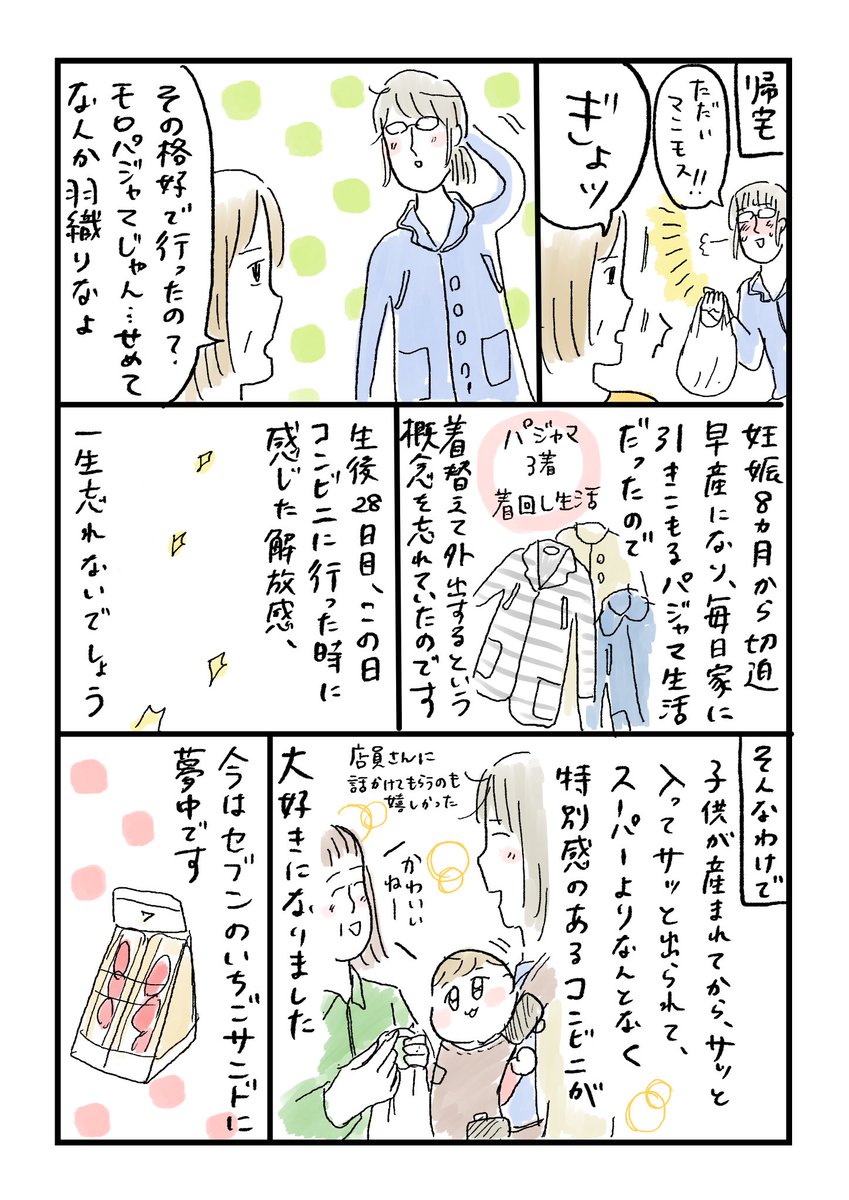 帰宅
ただい
マンモス!!
ぎょッ
その格好で行ったの?
モロパジャマじゃん…せめて
なんか羽織りなよ
妊娠8ヵ月から切迫
早産になり、毎日家に
引きこもるパジャマ生活
だったので
パジャマ
3着
着回し生活
着替えて外出するという
概念を忘れていたのです
生後28日目、この日
コンビニに行った時に
感じた解放感、
一生忘れないでしょう
そんなわけで
子供が産まれてから、サッと
入ってサッと出られて、
スーパーよりなんとなく
特別感のあるコンビニが
大好きになりました
店員さんに
話かけてもらうのも
嬉しかった
かわいい
ねー
今はセブンのいちごサンドに
夢中です